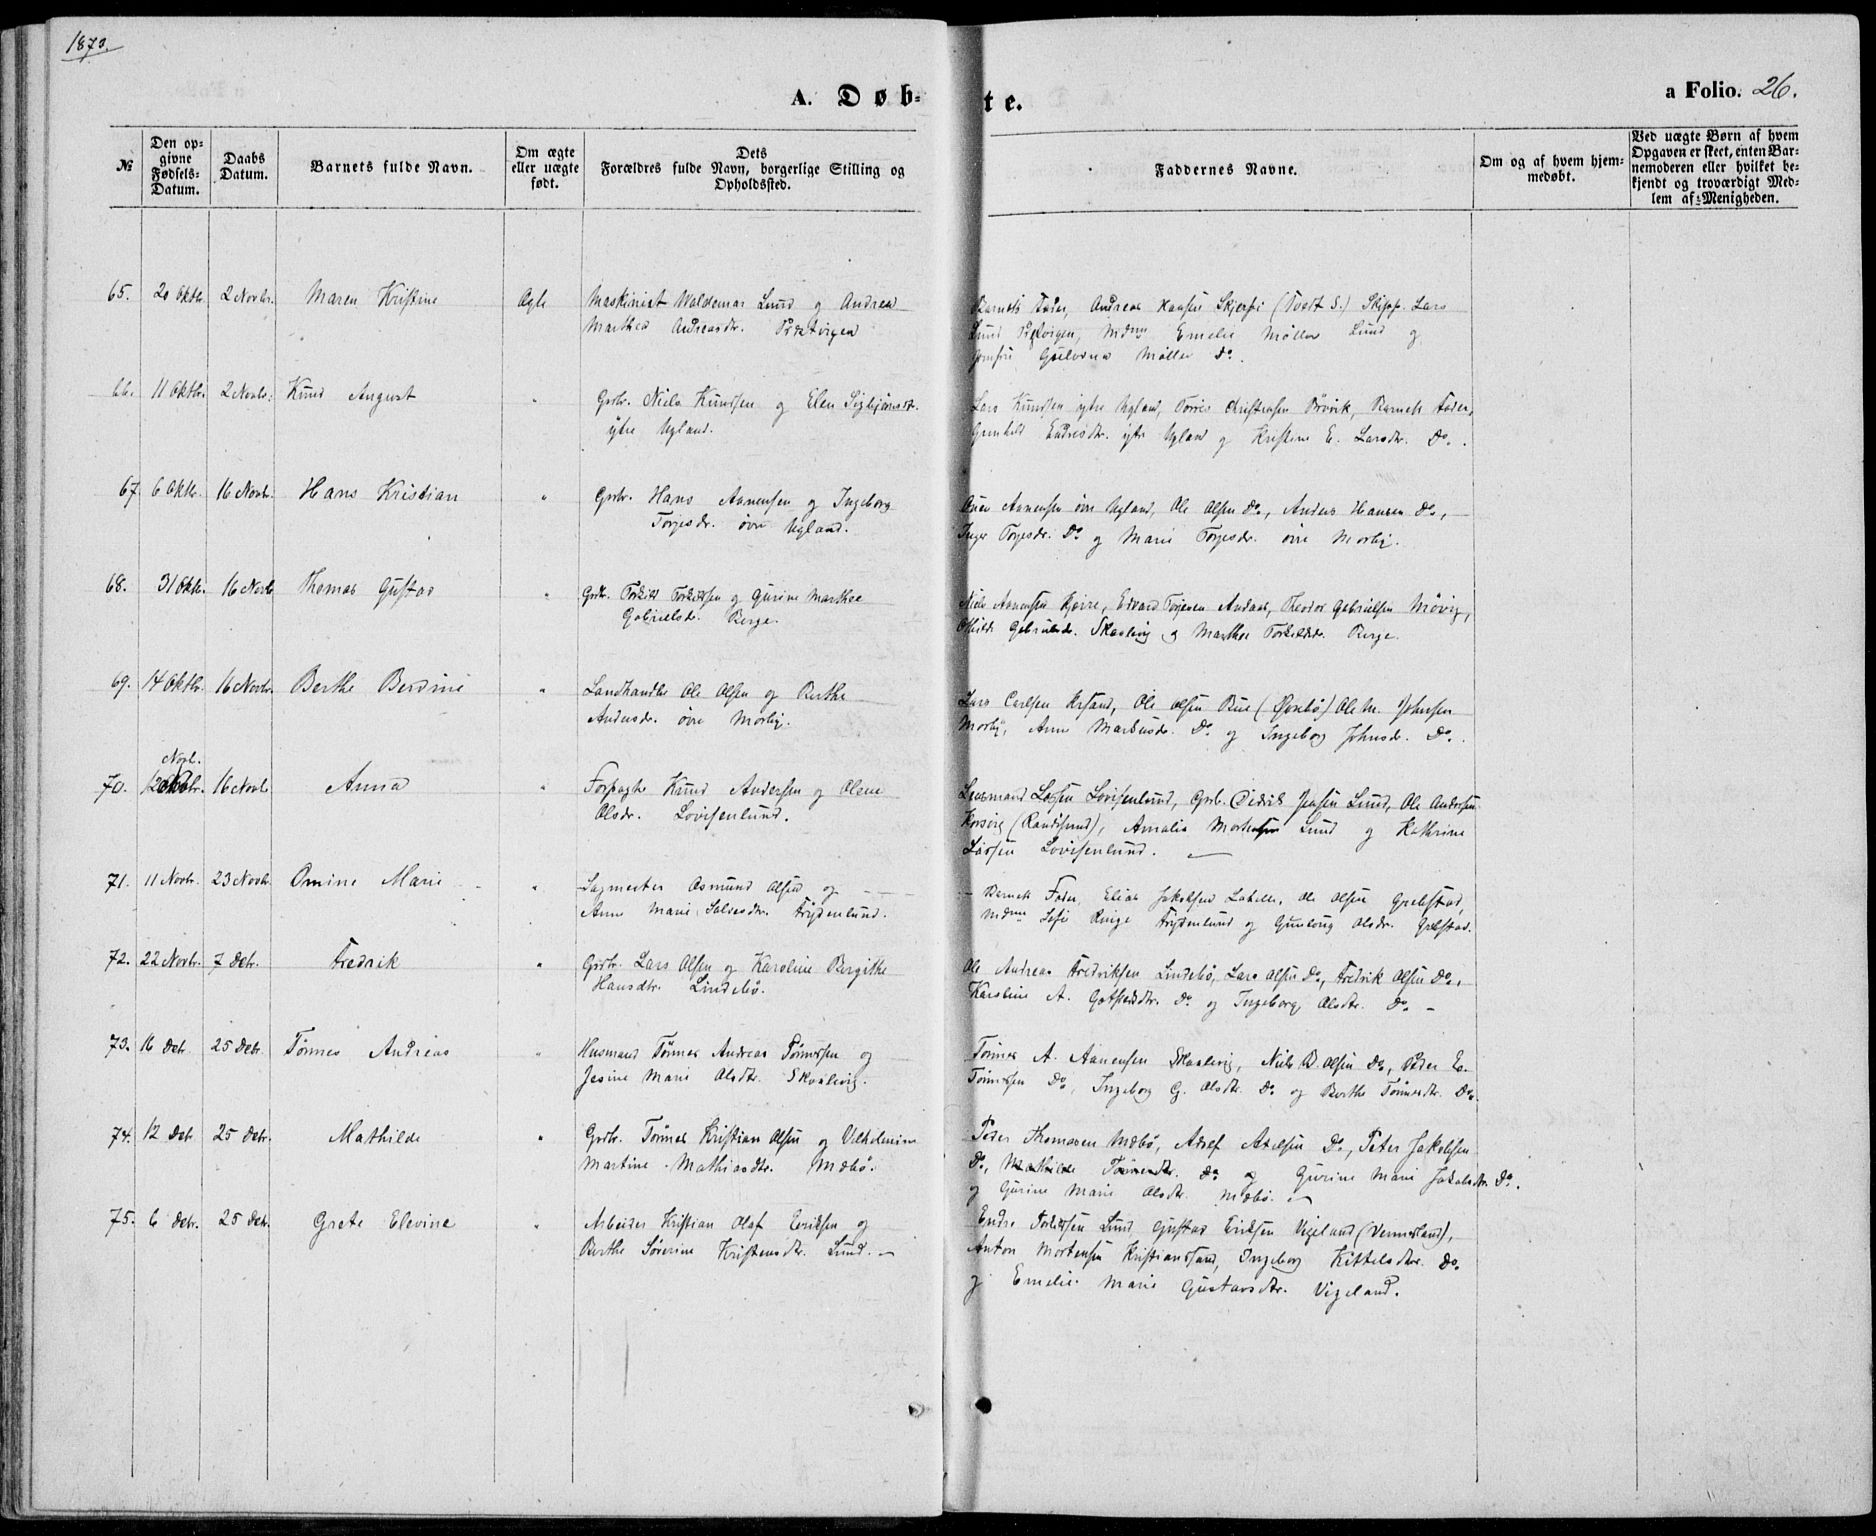 1873.
A. Døb-
te.
a Folio. 26.
№
Den op-
givne
Fødsels-
Datum.
Daabs
Datum.
Barnets fulde Navn.
Om ægte
eller uægte
født.
Dets
Forældres fulde Navn, borgerlige Stilling og
Opholdssted.
Faddernes Navne.
Om og af hvem hjem-
medøbt.
Ved uægte Børn af hvem
Opgaven er skeet, enten Bar-
nemoderen eller hvilket be-
kjendt og troværdigt Med-
lem af Menigheden.
65. 20 Oktbr. 2 Novbr. Maren Kristine Ægte Maskinist Waldemar Lund og Andrea
Marthea Andreasdr.
Barnets Fader, Andreas Hansen (Tvedt S.) Skipp. Lars
Lund Mdme Emelie Møller Lund og
Jomfru Møller Do.
66. 11 Oktbr. 2 Novbr. Knud August " Grbr. Niels Knudsen og Elen
ytre Ugland.
Lars Knudsen ytre Ugland, Barnets Fader,
Gunhild Endresdtr. ytre Ugland og Kristine E. Larsdtr. Do.
67 6 Oktbr. 16 Novbr. Hans Kristian " Grbr. Hans Aanensen og Ingeborg
Torjesdr. øvre Ugland.
Aanensen øvre Ugland, Ole Olsen Do, Anders Hansen Do,
Inger Torjesdr. Do og Marie Torjesdr. øvre Mosby.
68. 31 Oktbr. 16 Novbr Thomas Gustav " Grbr. Torkild Torkildsen og Gurine Marthee
Gabrielsdr. Berge.
Niels Aanensen Edvard Torjesen Andaas, Theodor Gabrielsen Møvig,
Gabrielsdr. Skaalevig og Marthe Torkildsdr. Berge.
69. 14 Oktbr. 16 Novbr. Berthe Berdine " Landhandler Ole Olsen og Berthe
Andersdr. øvre Mosby.
Lars Carlsen Krsand, Ole Olsen Rue (Øvrebø) Ole M. Johnsen
Mosby, Anne Markusdr. Do og Ingeborg Johnsdr. Do.
Novb.
70. 12 16 Novbr Anna " Forpagter Knud Andersen og Olene
Olsdr. Lovisenlund.
Lensmand Larsen Lovisenlund, Grb. Didrik Jensen Lund, Ole Andersen
(Randesund), Amalia Lund og Kathrine
Larsen Lovisenlund.
71. 11 Novbr. 23 Novbr Omine Marie " Sagmester Osmund Olsen og
Anne Marie Frydenlund.
Barnets Fader, Elias Jakobsen Ole Olsen Grebstad,
Mdme Sofie Ringe Frydenlund og Gunlaug Olsdr. Grebstad.
72. 22 Novbr. 7 Debr. Fredrik " Grbr. Lars Olsen og Karoline Bergithe
Hansdtr. Lindebø.
Ole Andreas Fredriksen Lindebø, Lars Olsen Do, Fredrik Olsen Do,
Karoline A. Do og Ingeborg Olsdtr. Do. -
73. 16 Debr 25 Debr. Tønnes Andreas " Husmand Tønnes Andreas Tønnessen og
Jesine Marie Olsdtr. Skaalevig.
Tønnes A. Aanensen Skaalevig, Niels B. Olsen Do, Peder E.
Tønnessen Do, Ingeborg G. Olsdtr. Do og Berthe Tønnesdtr. Do.
74. 12 Debr 25 Debr. Mathilde " Grbr. Tønnes Kristian Olsen og Vilhelmine
Martine Mathiasdtr. Mæbø.
Peder Thomasen Mæbø, Adolf Axelsen Do, Peter Jakobsen
Do, Mathilde Tønnesdtr. Do og Gurine Marie Jakobsdtr. Do.
og Gurine Marie Olsdtr. Mæbø.
75. 6 Debr. 25 Debr. Grete Elevine " Arbeider Kristian Olaf Eriksen og
Berthe Sørine Kristensdtr. Lund.
Endre Torkildsen Lund Gustav Eriksen Vigeland (Vennesland),
Anton Mortensen Kristianssand, Ingeborg Kittelsdtr. Do
og Emelie Marie Gustavsdtr. Vigeland.